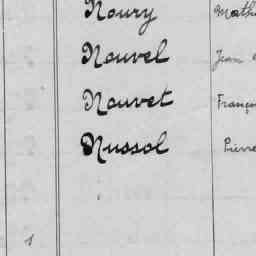 Noury Math
Nouvel Jean
Nouvet Franç
Nussol Pierre
1